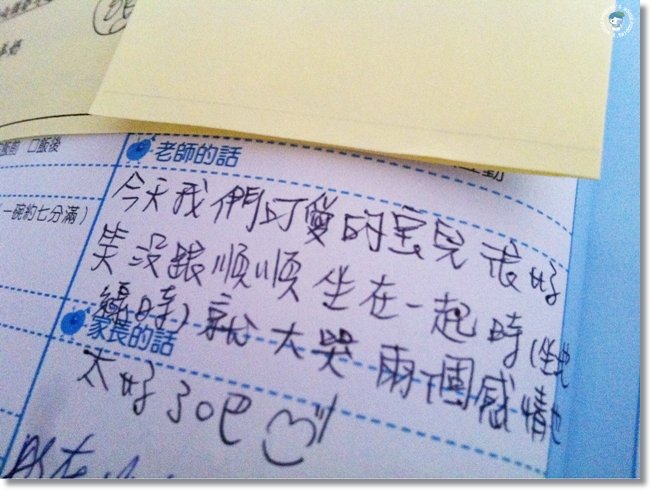 飯後
老師的話
(一碗約七分滿)
今天我們可愛的宝兒很好
笑沒跟順順坐在一起時(坐地
墊時)就大哭兩個感情也
家長的話
太好了吧